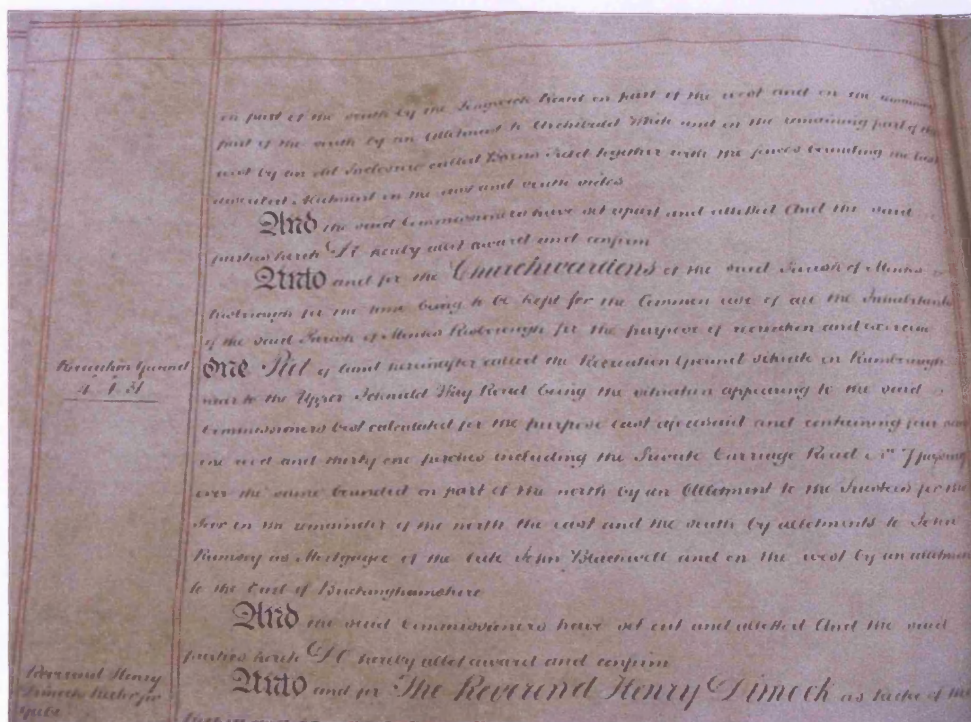 on part of the south by the Longwick Road on part of the west and on the
part of the south by an Allotment to Archibald White and on the remaining part of the
west by an old Inclosure called Field together with the fences bounding the last
Allotment on the east and south sides
And the said Commissioners have set apart and allotted And the said
parties hereto Do hereby allot award and confirm
Unto and for the Churchwardens of the said Parish of Monks
Risborough for the time being to be kept for the Common use of all the Inhabitants
of the said Parish of Monks Risborough for the purpose of recreation and exercise
Recreation Ground
4 . 1 . 31
One Plot of land hereinafter called the Recreation Ground situate in
near to the Upper Icknield Way Road being the situation appearing to the said
Commissioners best calculated for the purpose last aforesaid and containing four acres
one rood and thirty one perches including the Private Carriage Road No. 7 passing
over the same bounded on part of the north by an Allotment to the Trustees for the
Poor on the remainder of the north the east and the south by allotments to John
Rumsey as Mortgagee of the late John Blackwell and on the west by an allotment
to the Earl of Buckinghamshire
And the said Commissioners have set out and allotted And the said
parties hereto Do hereby allot award and confirm
Reverend Henry
Dimock Rector for
Glebe
Unto and for The Reverend Henry Dimock as Rector of the